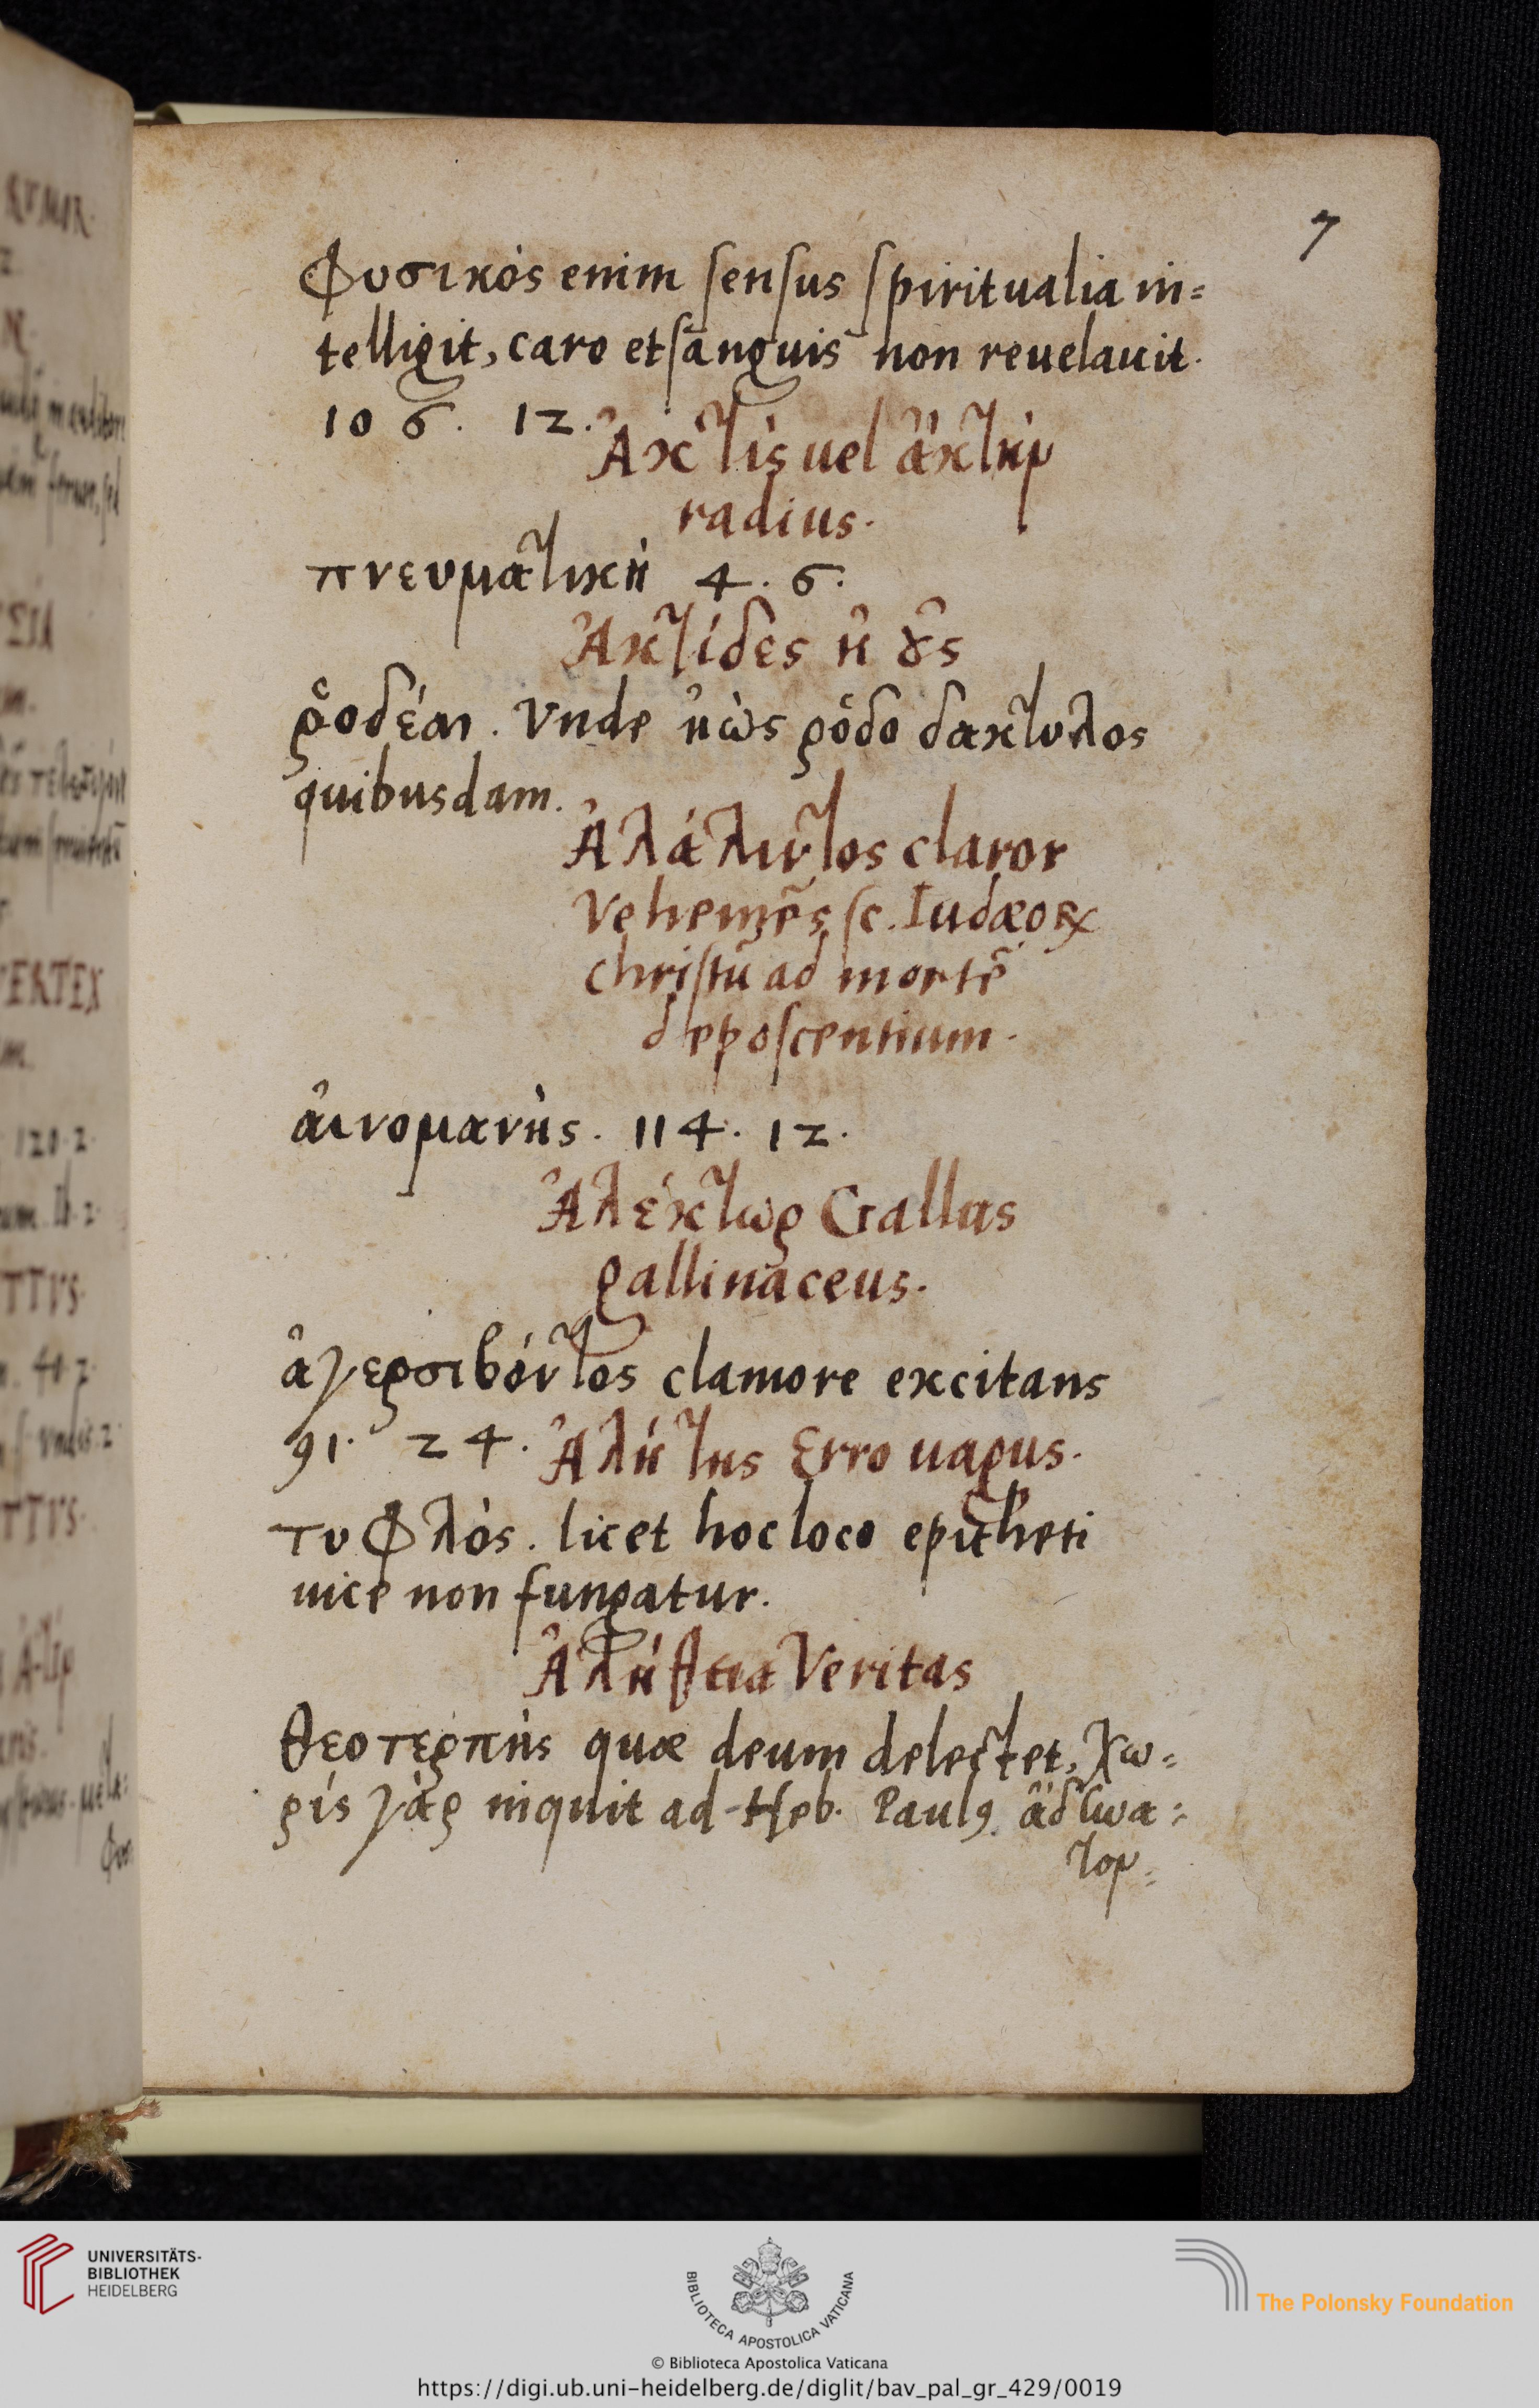 7
Φυσικὸς enim sensus spiritualia in=
telligit, caro et sanguis non reuelauit.
106. 12.
Ἀκτὶς uel ἀκτὴρ
radius.
πνευματικὴ 4. 6.
Ἀκτίδες ἠοῦς
ῥοδέαι. Vnde ἠὼς ῥοδοδακτυλος
quibusdam.
Ἀλάλητος claror
Vehemẽs sc. Iudæoꝝ
christũ ad mortẽ
deposcentium.
αἰνομανὴς. 114. 12.
Ἀλέκτωρ Gallus
gallinaceus.
ἀγερσιβόητος clamore excitans
91. 24.
Ἀλήτης Erro uagus.
τυφλὸς. licet hoc loco epitheti
uice non fungatur.
Ἀλήθεια Veritas
θεοτερπὴς quæ deum delectet, χω=
ρίς γὰρ inquit ad Heb. Paulꝰ
τον=
UNIVERSITÄTS-
BIBLIOTHEK
HEIDELBERG
BIBLIOTECA APOSTOLICA VATICANA
The Polonsky Foundation
© Biblioteca Apostolica Vaticana
https://digi.ub.uni-heidelberg.de/diglit/bav_pal_gr_429/0019